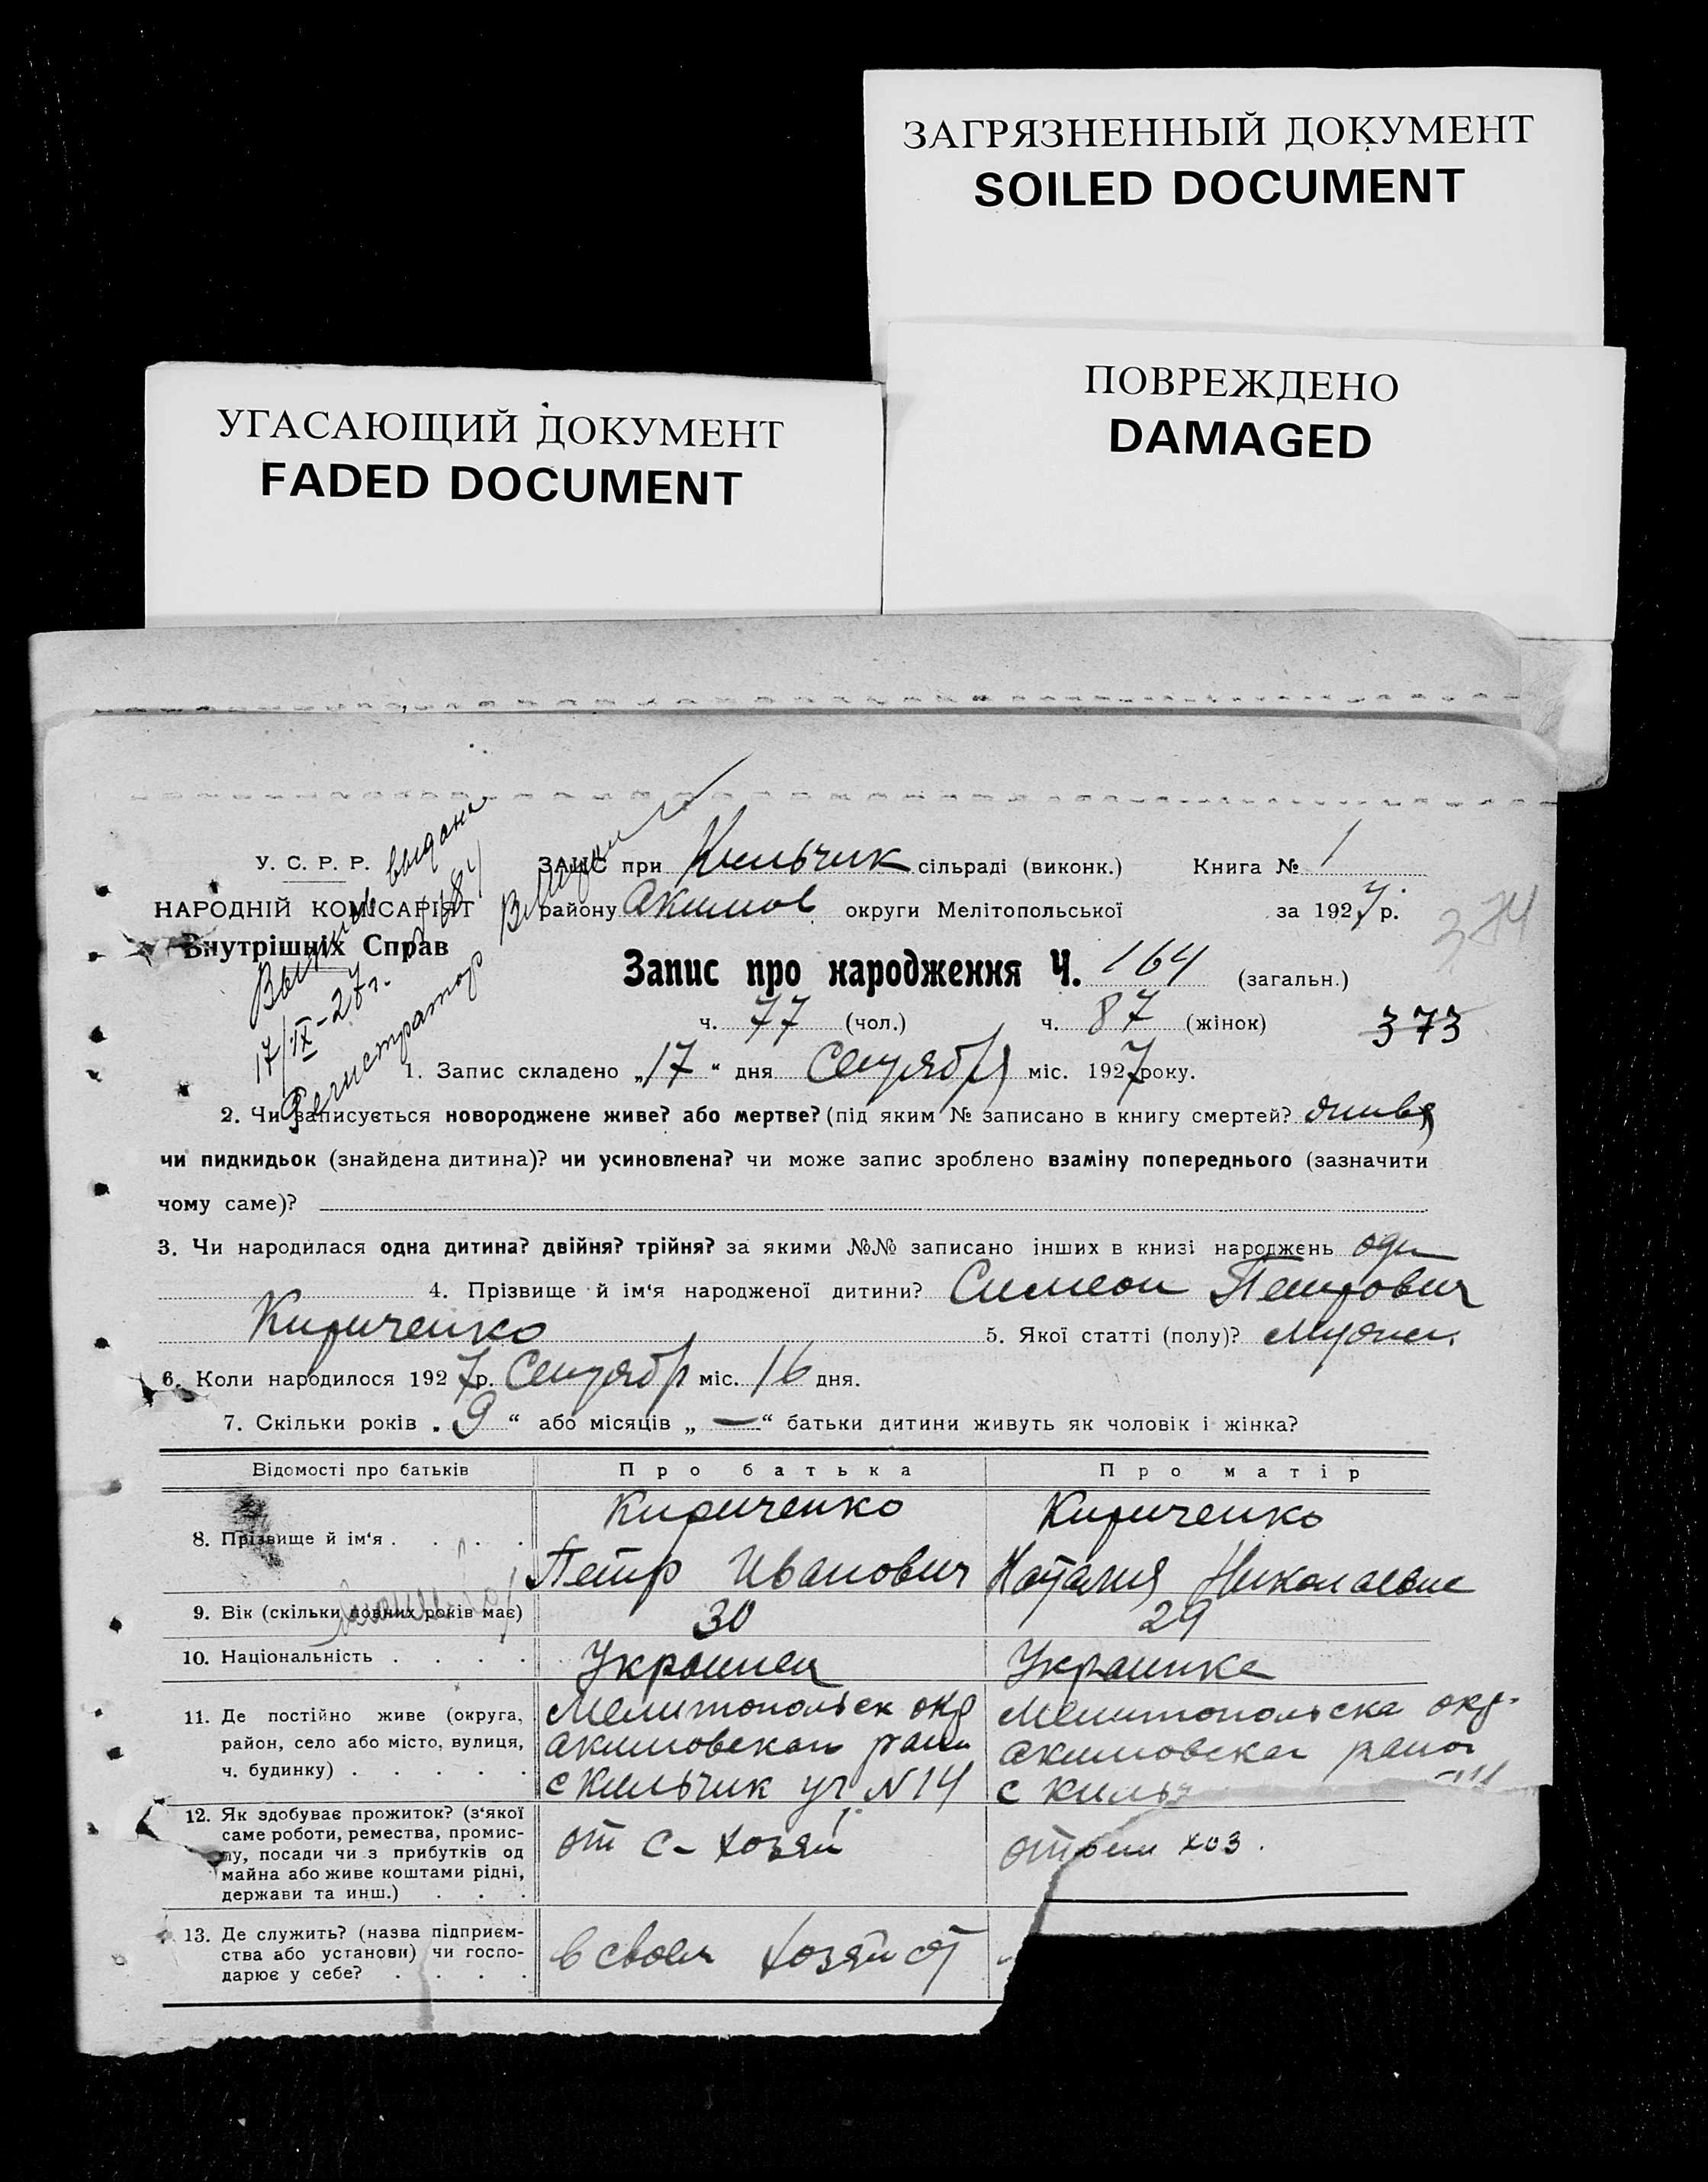 ЗАГРЯЗНЕННЫЙ ДОКУМЕНТ
SOILED DOCUMENT
УГАСАЮЩИЙ ДОКУМЕНТ
FADED DOCUMENT
ПОВРЕЖДЕНО
DAMAGED
У. С. Р. Р.
НАРОДНІЙ КОМІСАРІЯТ
Внутрішніх Справ
выдана
17/IX-27г.
Регистратор
ЗАЦС при Кильчик сільраді (виконк.) Книга № 1
району Акимов округи Мелітопольської за 1927 р.
374
Запис про народження Ч. 164 (загальн.)
ч. 77 (чол.) ч. 87 (жінок)
373
1. Запис складено „17“ дня Сентября міс. 1927 року.
2. Чи записується новороджене живе? або мертве? (під яким № записано в книгу смертей?
чи пидкидьок (знайдена дитина)? чи усиновлена? чи може запис зроблено взаміну попереднього (зазначити
чому саме)?
3. Чи народилася одна дитина? двійня? трійня? за якими №№ записано інших в книзі народжень
4. Прізвище й ім‘я народженої дитини? Симеон Петрович
Кириченко 5. Якої статті (полу)?
6. Коли народилося 1927 р. Сентябр міс. 16 дня.
7. Скільки років „9“ або місяців „—“ батьки дитини живуть як чоловік і жінка?
Відомості про батьків Про батька Про матір
8. Прізвище й ім‘я . . . . Кириченко Кириченко
Петр Иванович Наталия Николаевне
9. Вік (скільки повних років має) 30 29
10. Національність . . . . Украинец Украинка
11. Де постійно живе (округа, Мелитопольск окр Мелитопольска окр.
район, село або місто, вулиця, Акимовскаго район Акимовскаг район
ч. будинку) . . . . . с Кильчик уч N 14 с Киль
12. Як здобуває прожиток? (з‘якої
саме роботи, ремества, промис-
лу, посади чи з прибутків од от с-хозяй хоз.
майна або живе коштами рідні,
держави та инш.) . . .
13. Де служить? (назва підприєм-
ства або установи) чи госпо- в своем хозяйст
дарює у себе? . . . .